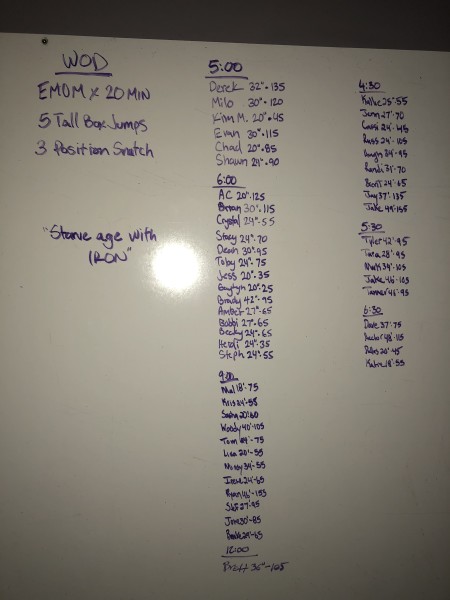 WOD
EMOM x 20 MIN
5 Tall Box Jumps
3 Position Snatch
"Starve age with
IRON"
5:00
Derek 32"-135
Milo 30"-120
Kim M. 20"-45
Evan 30"-115
Chad 20"-85
Shawn 24"-90
6:00
AC 20"-125
Brian 30"-115
Crystal 24"-55
Stacy 24"-70
Dean 30"-95
Toby 24"-75
Jess 20"-35
20"-25
Brady 42"-95
Amber 27"-65
Bobbi 27"-65
Becky 24"-65
Heidi 24"-35
Steph 24"-55
9:00
Mal 18"-75
Kris 24"-55
Woody 40"-105
Tom -75
Lisa 20"-55
Missy 34"-55
Irene 24"-65
Ryan 46"-155
27"-95
30"-85
12:00
Brett 36"-105
4:30
25"-55
27"-70
24"-45
Russ 24"-105
34"-95
31"-70
24"-65
Jay 37"-135
Jake -155
5:30
Tyler 42"-95
Tara 28"-95
34"-105
Jake 46"-105
Tanner 46"-95
6:30
Dave 37"-75
48"-115
20"-45
18"-55